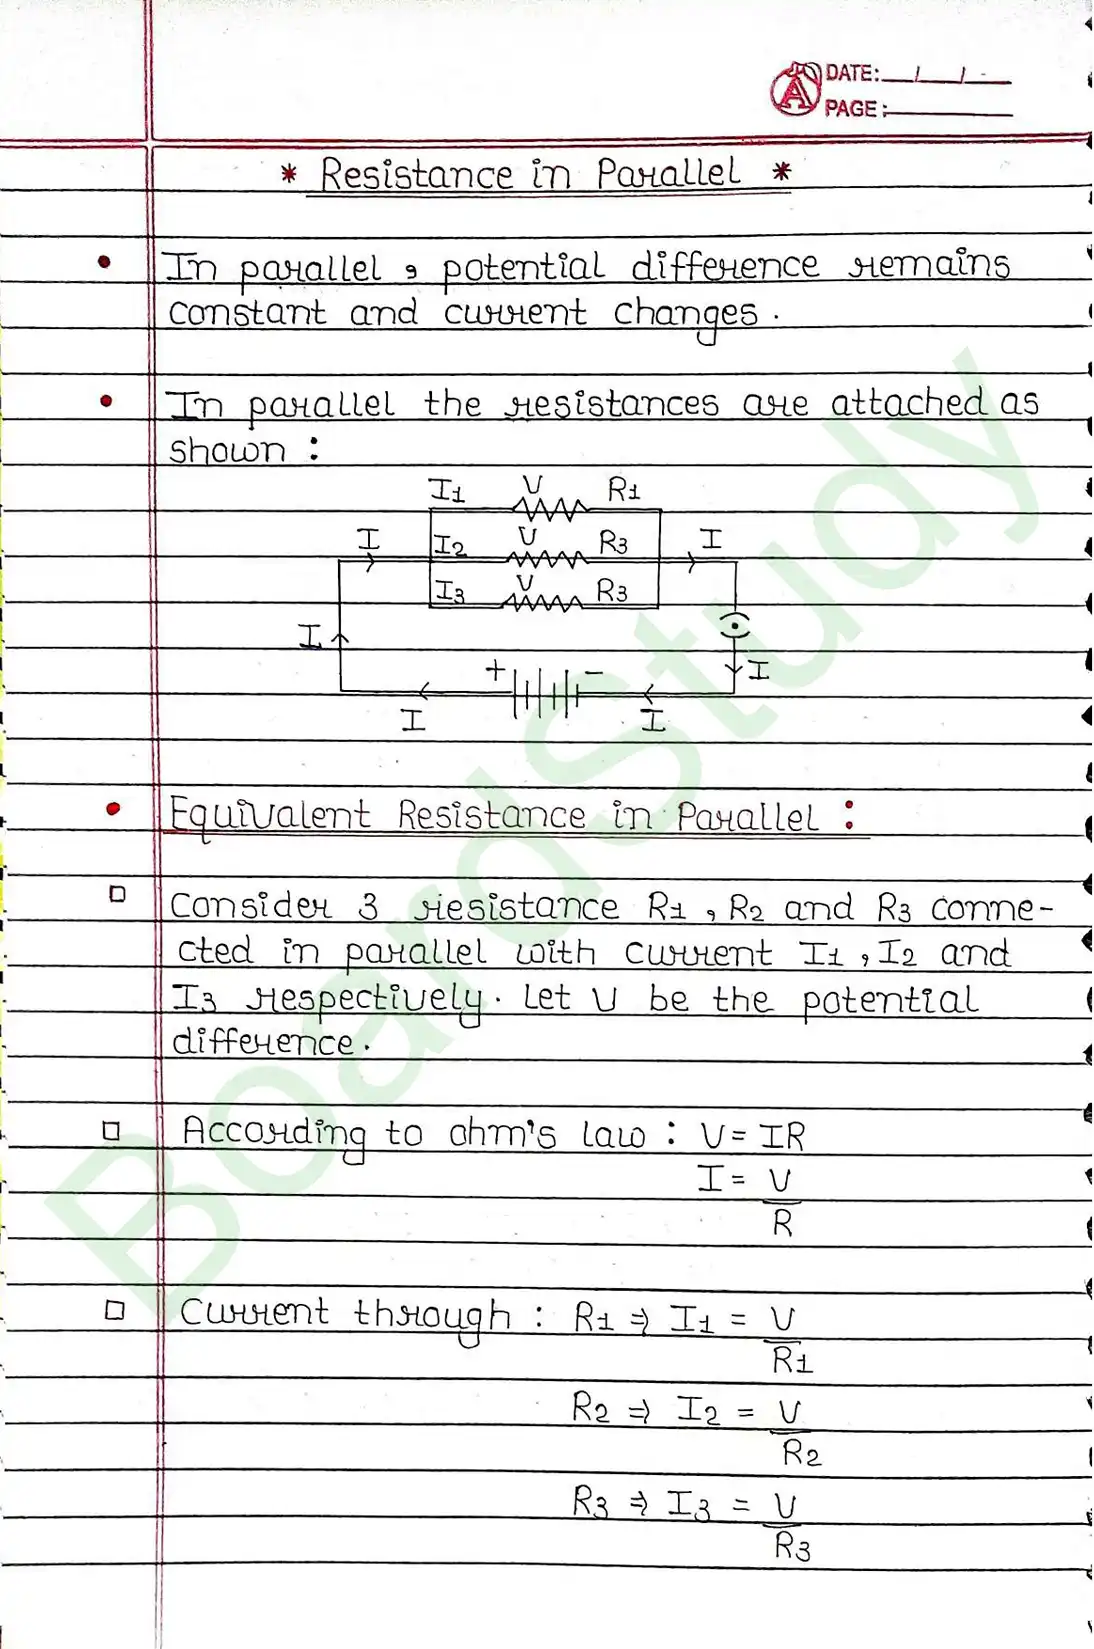 DATE: / /
PAGE:
* Resistance in Parallel *
• In parallel, potential difference remains
constant and current changes.
• In parallel the resistances are attached as
shown :
I1 V R1
I I2 V R3 I
I3 V R3
I
+ - I
I I
• Equivalent Resistance in Parallel :
□ Consider 3 resistance R1, R2 and R3 conne-
cted in parallel with current I1, I2 and
I3 respectively. Let V be the potential
difference.
□ According to ohm's law : V = IR
I = V
R
□ Current through : R1 ⇒ I1 = V
R1
R2 ⇒ I2 = V
R2
R3 ⇒ I3 = V
R3
BoardStudy